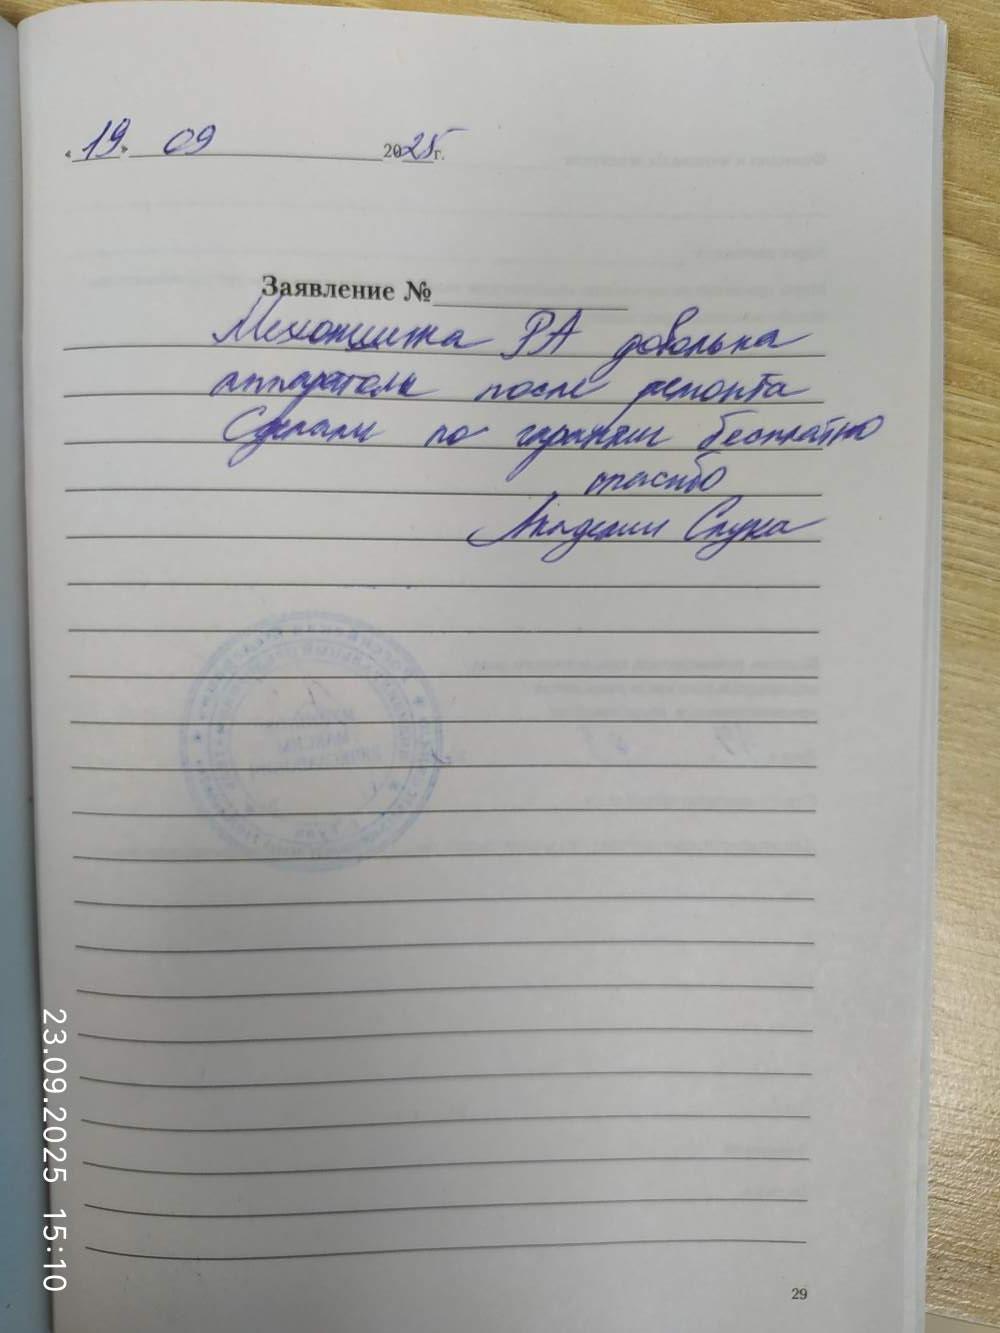 «19» 09 2025 г.
Заявление №
РА довольна
аппаратом после ремонта
Сделали по гарантии бесплатно
спасибо
Академии Слуха
23.09.2025 15:10
29